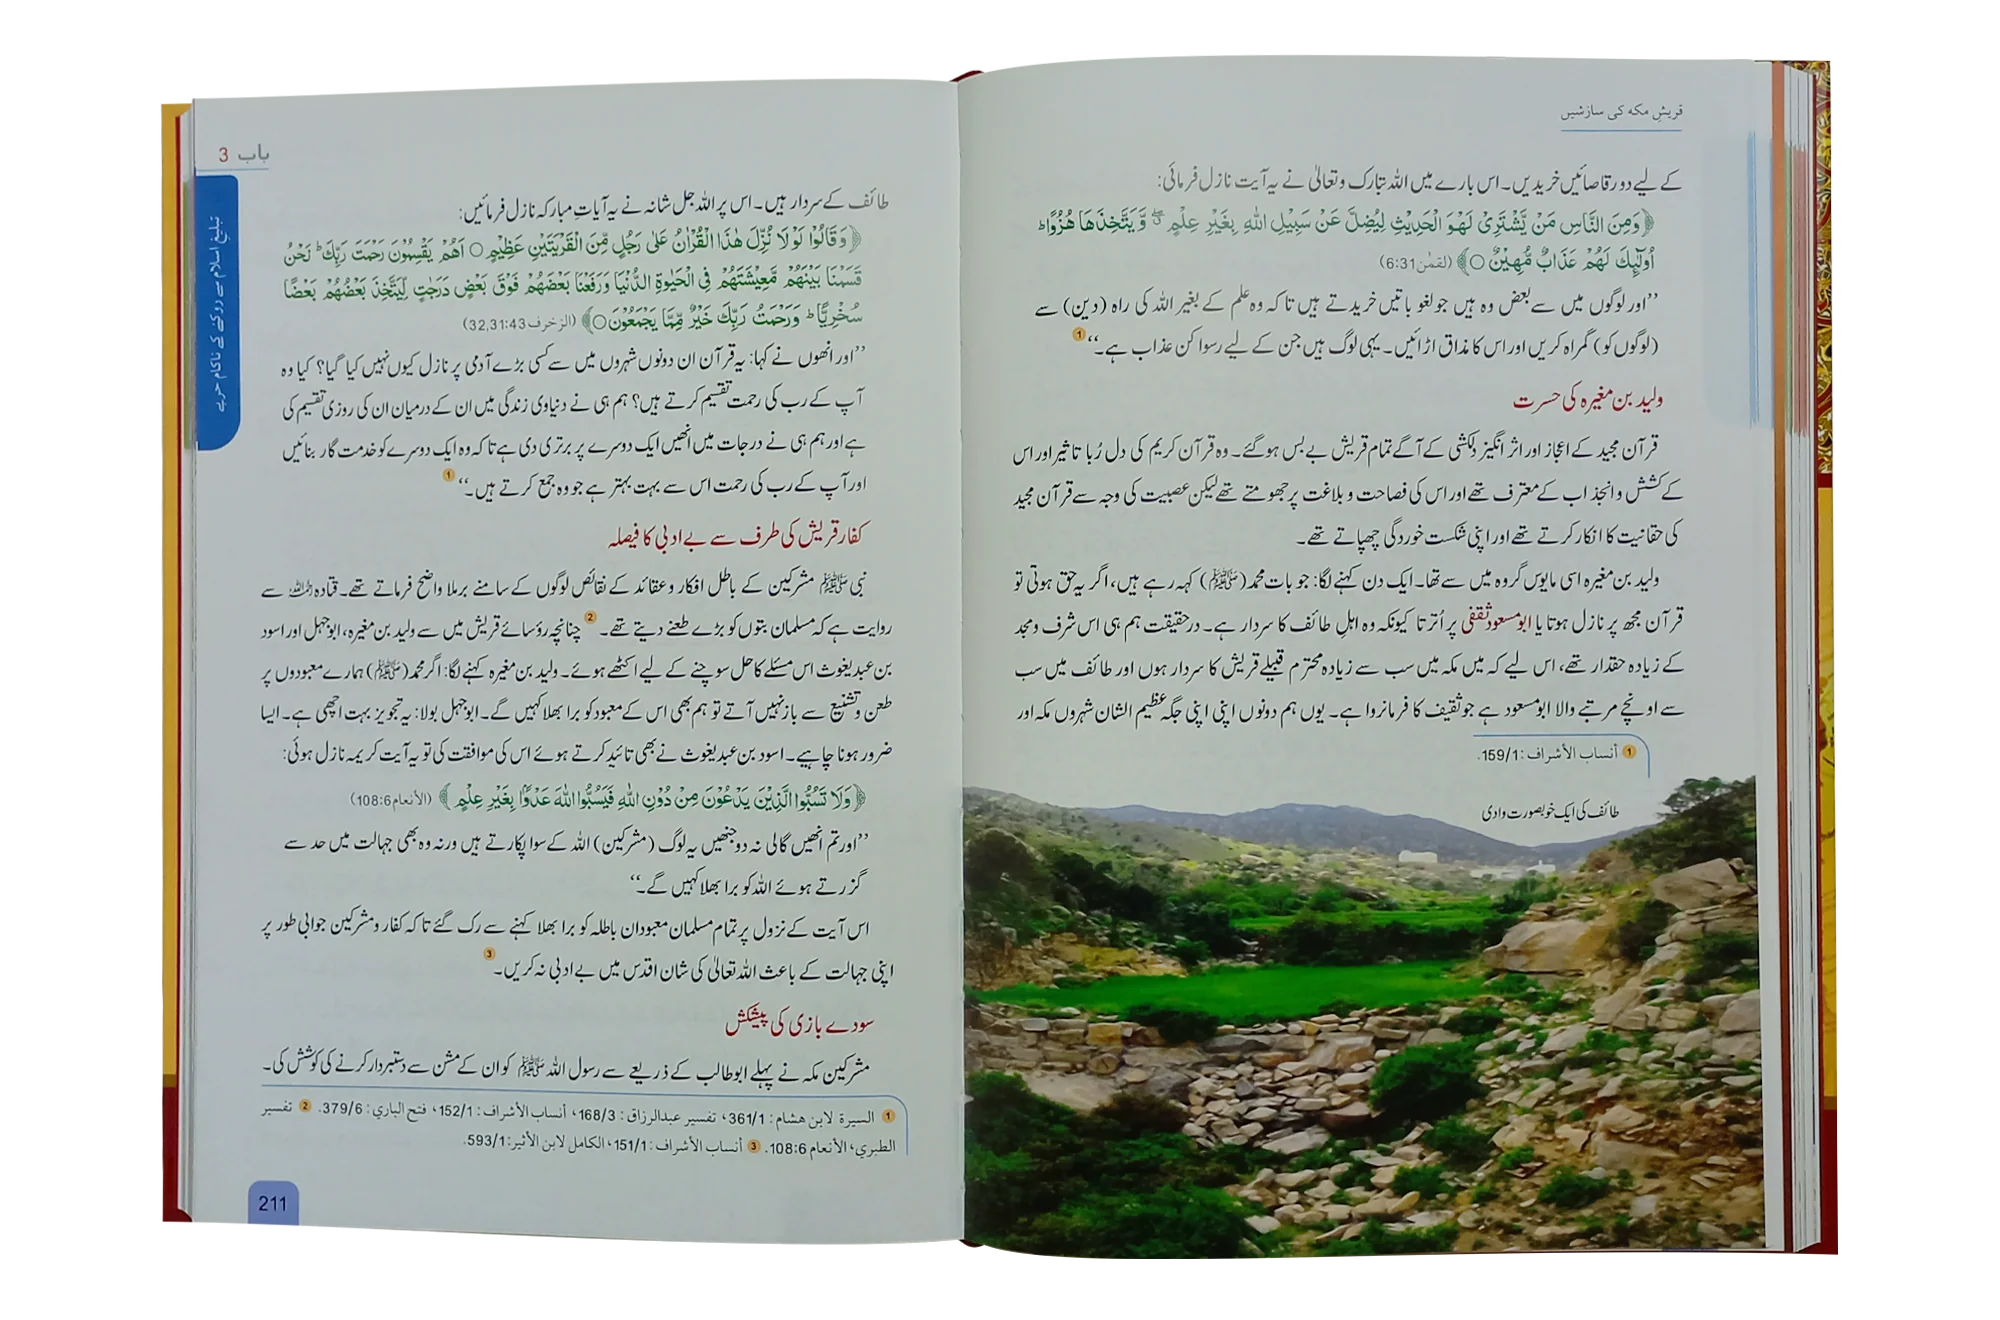 قریشِ مکہ کی سازشیں
کے لیے دو رقاصائیں خریدیں۔ اس بارے میں اللہ تبارک وتعالیٰ نے یہ آیت نازل فرمائی:
﴿وَمِنَ النَّاسِ مَنْ يَّشْتَرِيْ لَهْوَ الْحَدِيْثِ لِيُضِلَّ عَنْ سَبِيْلِ اللهِ بِغَيْرِ عِلْمٍ ۖ وَّيَتَّخِذَهَا هُزُوًا ؕ
اُولٰٓئِكَ لَهُمْ عَذَابٌ مُّهِيْنٌ ○﴾ (لقمٰن 6:31)
’’اور لوگوں میں سے بعض وہ ہیں جو لغو باتیں خریدتے ہیں تاکہ وہ علم کے بغیر اللہ کی راہ (دین) سے
(لوگوں کو) گمراہ کریں اور اس کا مذاق اڑائیں۔ یہی لوگ ہیں جن کے لیے رسوا کن عذاب ہے۔‘‘ 1
ولید بن مغیرہ کی حسرت
قرآن مجید کے اعجاز اور اثر انگیز دلکشی کے آگے تمام قریش بے بس ہو گئے۔ وہ قرآن کریم کی دل رُبا تاثیر اور اس
کے کشش و انجذاب کے معترف تھے اور اس کی فصاحت و بلاغت پر جھومتے تھے لیکن عصبیت کی وجہ سے قرآن مجید
کی حقانیت کا انکار کرتے تھے اور اپنی شکست خوردگی چھپاتے تھے۔
ولید بن مغیرہ اسی مایوس گروہ میں سے تھا۔ ایک دن کہنے لگا: جو بات محمد (ﷺ) کہہ رہے ہیں، اگر یہ حق ہوتی تو
قرآن مجھ پر نازل ہوتا یا ابومسعود ثقفی پر اُترتا کیونکہ وہ اہلِ طائف کا سردار ہے۔ درحقیقت ہم ہی اس شرف ومجد
کے زیادہ حقدار تھے، اس لیے کہ میں مکہ میں سب سے زیادہ محترم قبیلے قریش کا سردار ہوں اور طائف میں سب
سے اونچے مرتبے والا ابومسعود ہے جو ثقیف کا فرمانروا ہے۔ یوں ہم دونوں اپنی اپنی جگہ عظیم الشان شہروں مکہ اور
1 أنساب الأشراف: 159/1.
طائف کی ایک خوبصورت وادی
باب 3
تبلیغِ اسلام سے روکنے کے ناکام حربے
طائف کے سردار ہیں۔ اس پر اللہ جل شانہ نے یہ آیاتِ مبارکہ نازل فرمائیں:
﴿وَقَالُوْا لَوْلَا نُزِّلَ هٰذَا الْقُرْاٰنُ عَلٰى رَجُلٍ مِّنَ الْقَرْيَتَيْنِ عَظِيْمٍ ○ اَهُمْ يَقْسِمُوْنَ رَحْمَتَ رَبِّكَ ؕ نَحْنُ
قَسَمْنَا بَيْنَهُمْ مَّعِيْشَتَهُمْ فِى الْحَيٰوةِ الدُّنْيَا وَرَفَعْنَا بَعْضَهُمْ فَوْقَ بَعْضٍ دَرَجٰتٍ لِّيَتَّخِذَ بَعْضُهُمْ بَعْضًا
سُخْرِيًّا ؕ وَرَحْمَتُ رَبِّكَ خَيْرٌ مِّمَّا يَجْمَعُوْنَ ○﴾ (الزخرف 32,31:43)
’’اور انھوں نے کہا: یہ قرآن ان دونوں شہروں میں سے کسی بڑے آدمی پر نازل کیوں نہیں کیا گیا؟ کیا وہ
آپ کے رب کی رحمت تقسیم کرتے ہیں؟ ہم ہی نے دنیاوی زندگی میں ان کے درمیان ان کی روزی تقسیم کی
ہے اور ہم ہی نے درجات میں انھیں ایک دوسرے پر برتری دی ہے تاکہ وہ ایک دوسرے کو خدمت گار بنائیں
اور آپ کے رب کی رحمت اس سے بہت بہتر ہے جو وہ جمع کرتے ہیں۔‘‘ 1
کفار قریش کی طرف سے بے ادبی کا فیصلہ
نبی ﷺ مشرکین کے باطل افکار و عقائد کے نقائص لوگوں کے سامنے برملا واضح فرماتے تھے۔ قتادہ رحمہ اللہ سے
روایت ہے کہ مسلمان بتوں کو بڑے طعنے دیتے تھے۔ 2 چنانچہ رؤسائے قریش میں سے ولید بن مغیرہ، ابوجہل اور اسود
بن عبد یغوث اس مسئلے کا حل سوچنے کے لیے اکٹھے ہوئے۔ ولید بن مغیرہ کہنے لگا: اگر محمد (ﷺ) ہمارے معبودوں پر
طعن و تشنیع سے باز نہیں آتے تو ہم بھی اس کے معبود کو برا بھلا کہیں گے۔ ابوجہل بولا: یہ تجویز بہت اچھی ہے۔ ایسا
ضرور ہونا چاہیے۔ اسود بن عبد یغوث نے بھی تائید کرتے ہوئے اس کی موافقت کی تو یہ آیت کریمہ نازل ہوئی:
﴿وَلَا تَسُبُّوا الَّذِيْنَ يَدْعُوْنَ مِنْ دُوْنِ اللهِ فَيَسُبُّوا اللهَ عَدْوًۢا بِغَيْرِ عِلْمٍ﴾ (الأنعام 108:6)
’’اور تم انھیں گالی نہ دو جنھیں یہ لوگ (مشرکین) اللہ کے سوا پکارتے ہیں ورنہ وہ بھی جہالت میں حد سے
گزرتے ہوئے اللہ کو برا بھلا کہیں گے۔‘‘
اس آیت کے نزول پر تمام مسلمان معبودان باطلہ کو برا بھلا کہنے سے رک گئے تاکہ کفار و مشرکین جوابی طور پر
اپنی جہالت کے باعث اللہ تعالیٰ کی شان اقدس میں بے ادبی نہ کریں۔ 3
سودے بازی کی پیشکش
مشرکین مکہ نے پہلے ابوطالب کے ذریعے سے رسول اللہ ﷺ کو ان کے مشن سے دستبردار کرنے کی کوشش کی۔
1 السيرة لابن هشام: 361/1، تفسير عبدالرزاق: 168/3، أنساب الأشراف: 152/1، فتح الباري: 379/6. 2 تفسير
الطبري، الأنعام 108:6. 3 أنساب الأشراف: 151/1، الكامل لابن الأثير: 593/1.
211